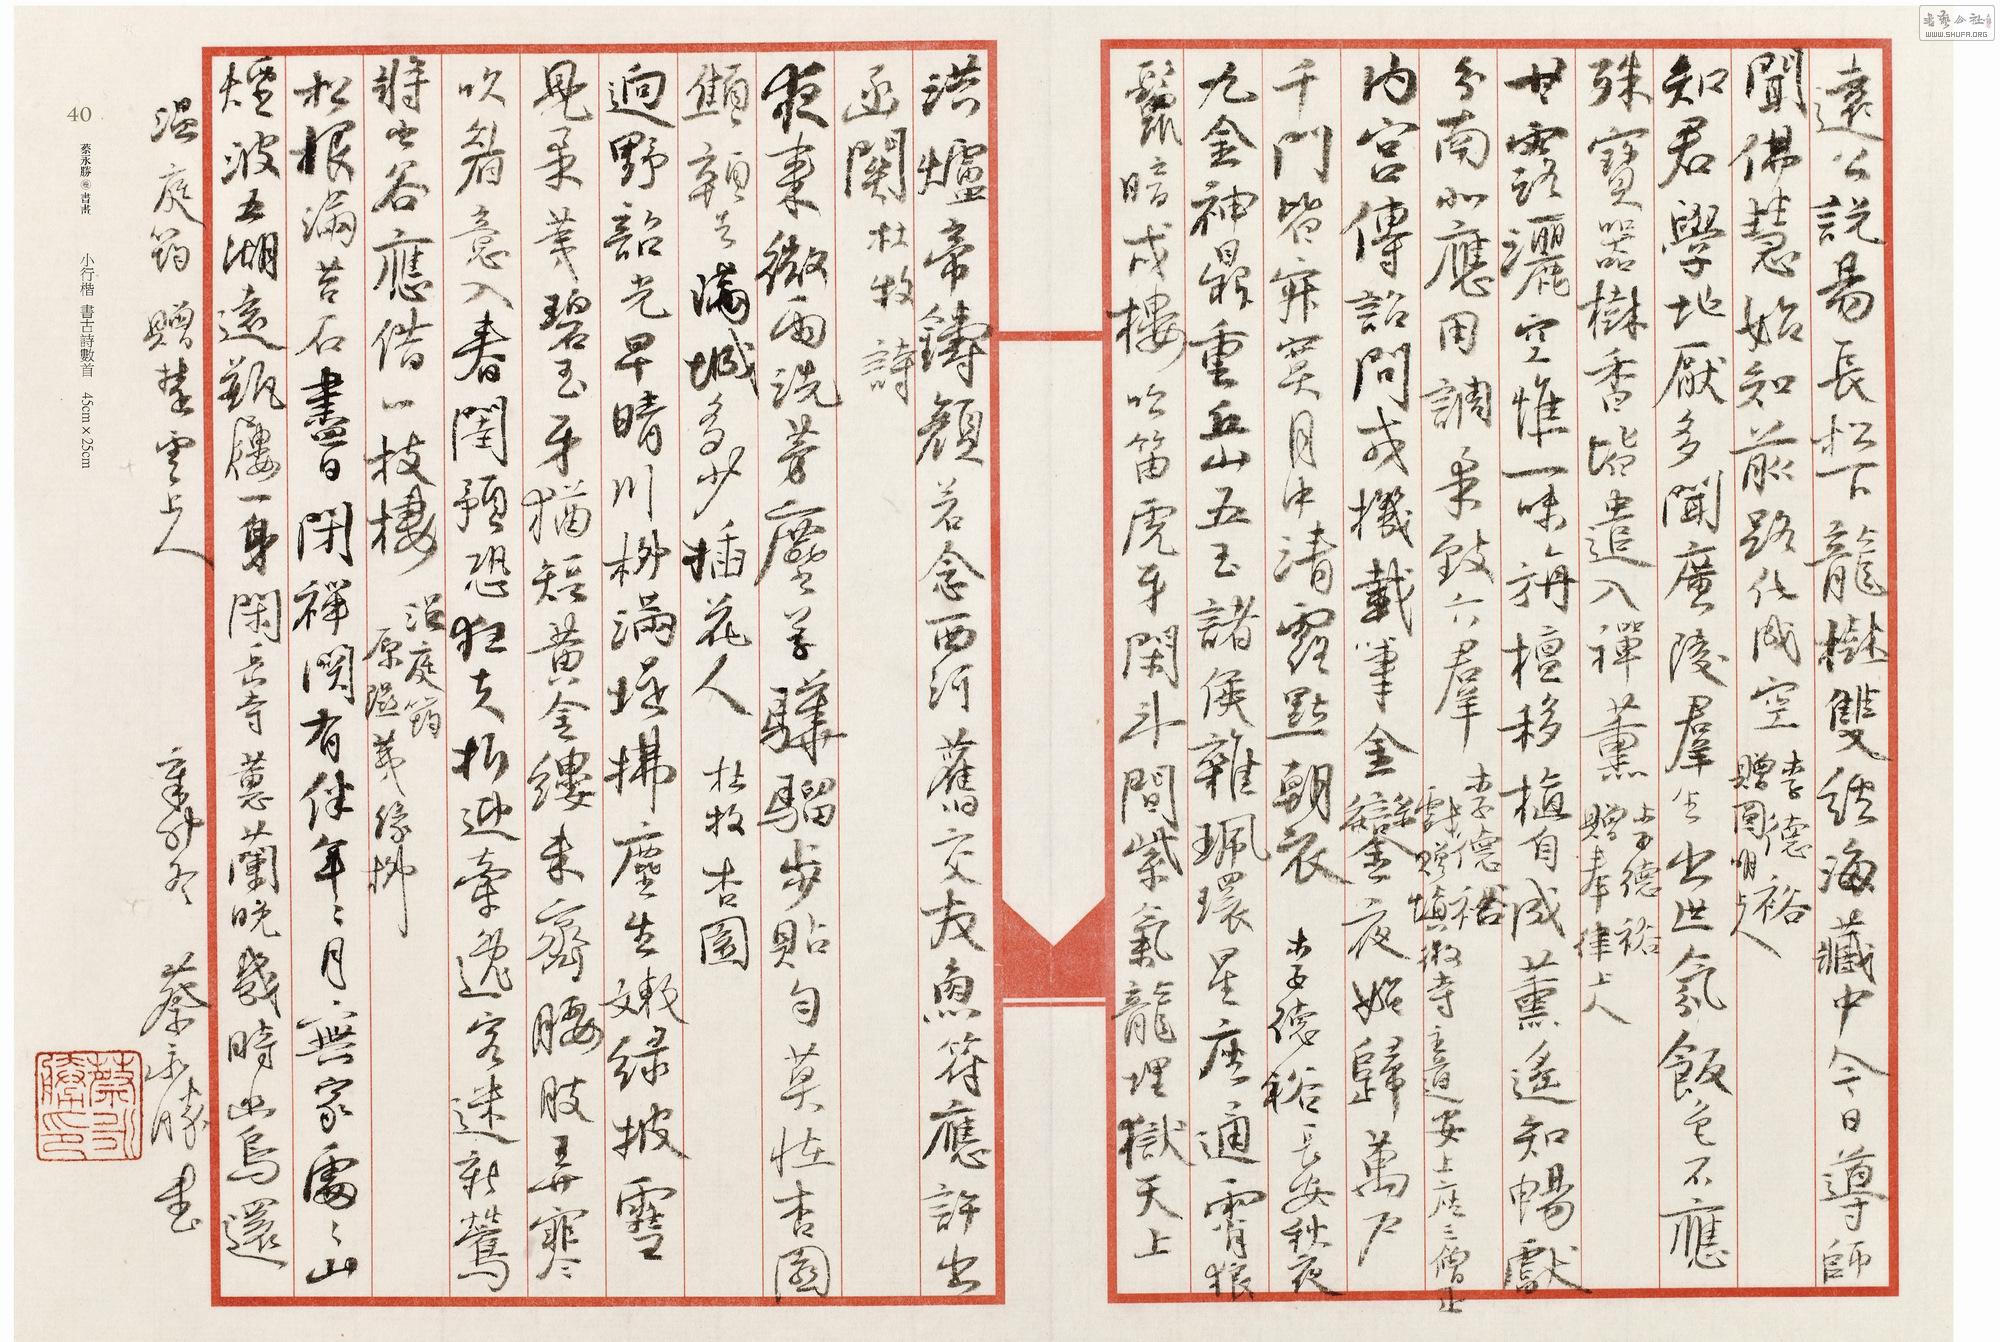 遠公説易長松下龍樹雙經海藏中今日導師
聞佛慧始知前路化成空 李德裕贈圓明上人
知君學地厭多聞廣陵群生出世氛飯色不應
殊寶器樹香皆遣入禪薰 李德裕贈奉律上人
甘露灑空惟一味旃檀移植自成薰遙知暢獻
分南北應用調柔致六群 李德裕戲贈慎微寺主道安上座三僧正
内宮傳詔問戎機載筆金鑾夜始歸萬户
千門皆寂寞月中清露點朝衣 李德裕長安秋夜
九金神鼎重丘山五玉諸侯雜珮環星座通霄狼
鬣暗戍樓吹笛虎牙閑斗間紫氣龍埋獄天上
洪爐帝鑄顔若念西河舊交友魚符應許出
函関 杜牧詩
夜來微雨洗芳塵公子驊騮步貼勻莫怪杏園
顦顇去滿城多少插花人 杜牧杏園
迥野韶光早晴川栁滿堤拂塵生嫩綠披雪
見柔荑碧玉牙猶短黃金縷未齊腰肢弄寒
吹眉意入春閨預恐狂夫折迎牽逸客迷新鶯
將出谷應借一枝棲 温庭筠原隰荑綠栁
松根滿苔石盡日閉禪関有伴年年月無家處處山
煙波五湖遠瓶屨一身閑岳寺蕙蘭晚幾時幽鳥還
温庭筠 贈楚雲上人
辛卯冬 蔡永勝書
蔡永勝印
40 蔡永勝 書畫 小行楷 書古詩數首 45cm×25cm
書藝公社
WWW.SHUFA.ORG